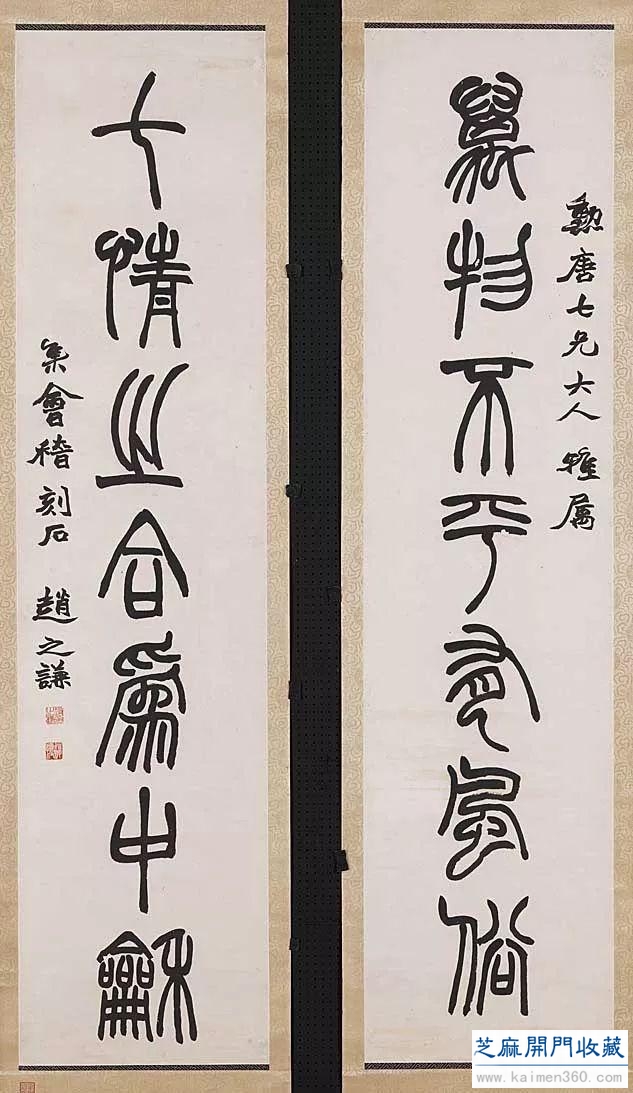 勲唐七兄大人雅属
萬物不平有風俗
七情之合為中龢
集會稽刻石 趙之謙
芝麻開門收藏
www.kaimen360.com